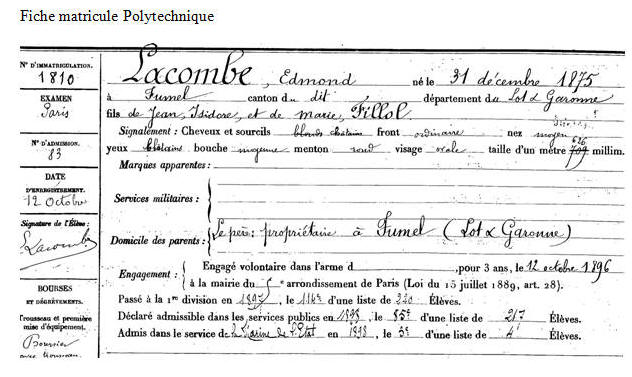 Fiche matricule Polytechnique
N° D'IMMATRICULATION.
1810
EXAMEN
Paris
N° D'ADMISSION.
83
DATE
D'ENREGISTREMENT.
12 Octobre
Signature de l'Élève:
E Lacombe
BOURSES
ET DÉGRÈVEMENTS.
Trousseau et première
mise d'équipement.
Boursier
avec trousseau
Lacombe, Edmond né le 31 décembre 1875
à Fumel canton du dit département du Lot & Garonne
fils de Jean, Isidore, et de Marie, Fillol.
Signalement: Cheveux et sourcils blonds chatains front ordinaire nez moyen
yeux chatains bouche moyenne menton rond visage ovale taille d'un mètre 709 626 millim.
Marques apparentes:
Services militaires:
Domicile des parents: Le père, propriétaire à Fumel (Lot & Garonne)
Engagement: Engagé volontaire dans l'arme d , pour 3 ans, le 12 octobre 1896
à la mairie du 5e arrondissement de Paris (Loi du 15 juillet 1889, art. 28).
Passé à la 1re division en 1897, le 114e d'une liste de 220 Élèves.
Déclaré admissible dans les services publics en 1898, le 85e d'une liste de 217 Élèves.
Admis dans le service de la Marine de l'Etat en 1898, le 3e d'une liste de 4 Élèves.